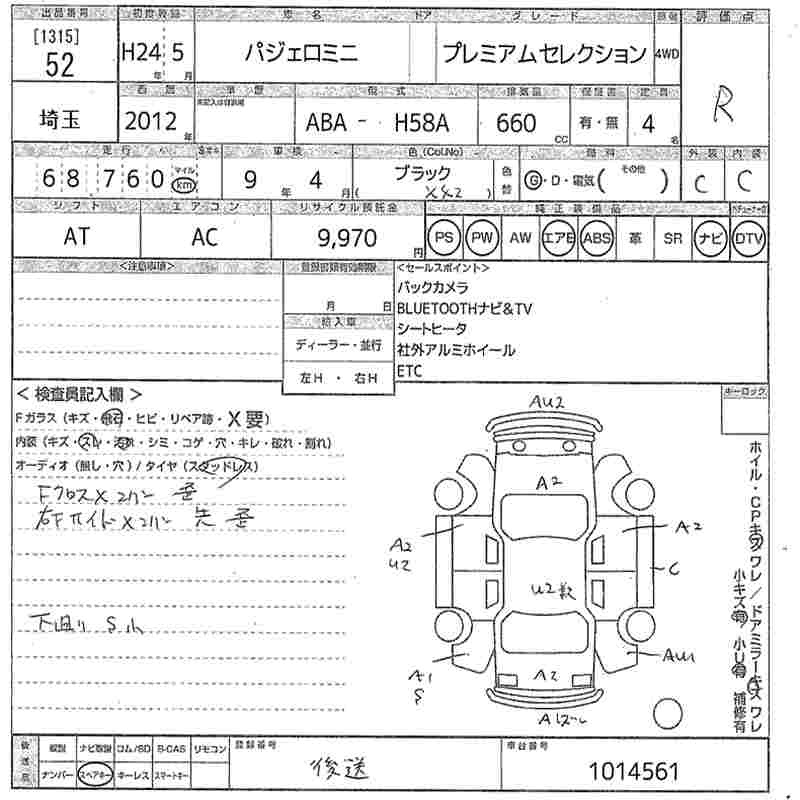 出品番号 初度登録 車名 ドア グレード 駆動 評価点
[1315]
52 H24年 5月 パジェロミニ プレミアムセレクション 4WD R
西暦 車歴 型式 排気量 保証書 定員
埼玉 2012年 未記入は自家用 ABA - H58A 660cc 有・無 4名
走行 車検 色(Col.No) 燃料 外装 内装
68,760 マイル km 9年 4月 ブラック ( X42 ) 色替 G・D・電気 ( その他 ) C C
シフト エアコン リサイクル預託金 純正装備品
AT AC 9,970円 PS PW AW エアB ABS 革 SR ナビ DTV
<注意事項> 登録書類有効期限 <セールスポイント>
バックカメラ
月 日 BLUETOOTHナビ&TV
輸入車 シートヒータ
ディーラー・並行 社外アルミホイール
左H ・ 右H ETC
< 検査員記入欄 > キーロック
Fガラス (キズ・飛石・ヒビ・リペア跡・X要)
内装 (キズ・スレ・汚れ・シミ・コゲ・穴・キレ・破れ・割れ)
オーディオ (無し・穴) / タイヤ (スタッドレス)
FクロスX コアサポ 歪
右FサイドX コアサポ 先 歪
下回り S小
AU2
A2
A2
U2
A2
C
U2数
A1
S
AU1
A2
A1ﾋｰﾚ
ホイル・CPキズワレ / ドアミラーキズワレ
小キズ有 / 小U有 補修有
後送品 取説 ナビ取説 コム/SD B-CAS リモコン 登録番号 車台番号
ナンバー スペアキー キーレス スマートキー 後送 1014561